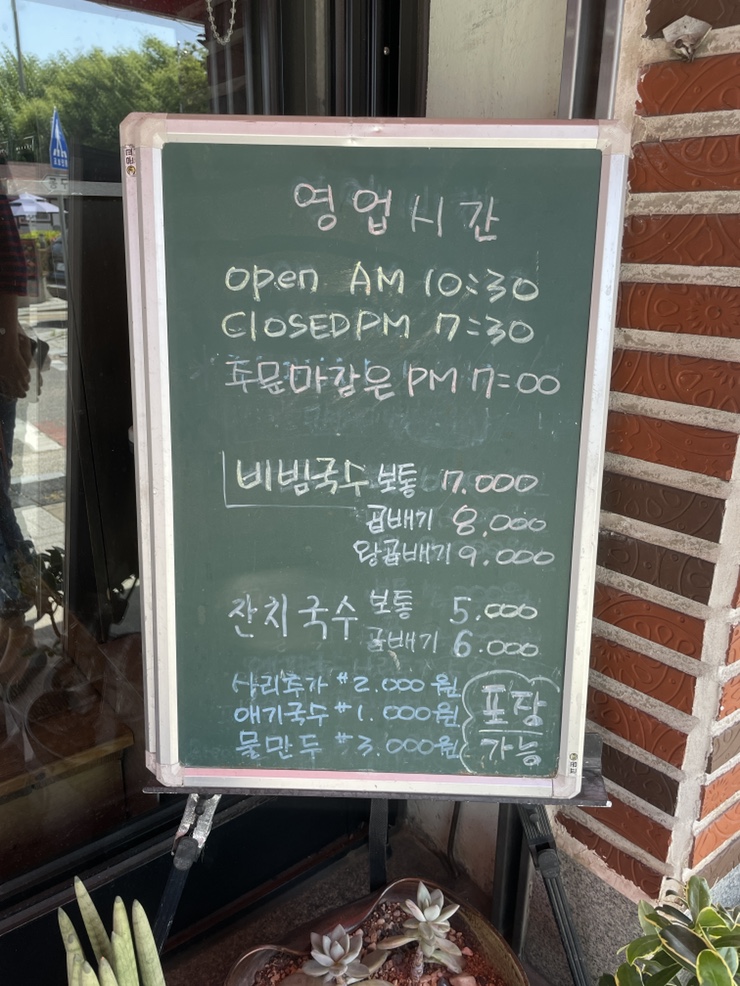 영업시간
open AM 10:30
CLOSED PM 7:30
주문마감은 PM 7:00
비빔국수 보통 7.000
곱배기 8,000
왕곱배기 9.000
잔치국수 보통 5.000
곱배기 6.000
사리추가 # 2.000원
애기국수 # 1.000원
물만두 # 3.000원
포장
가능